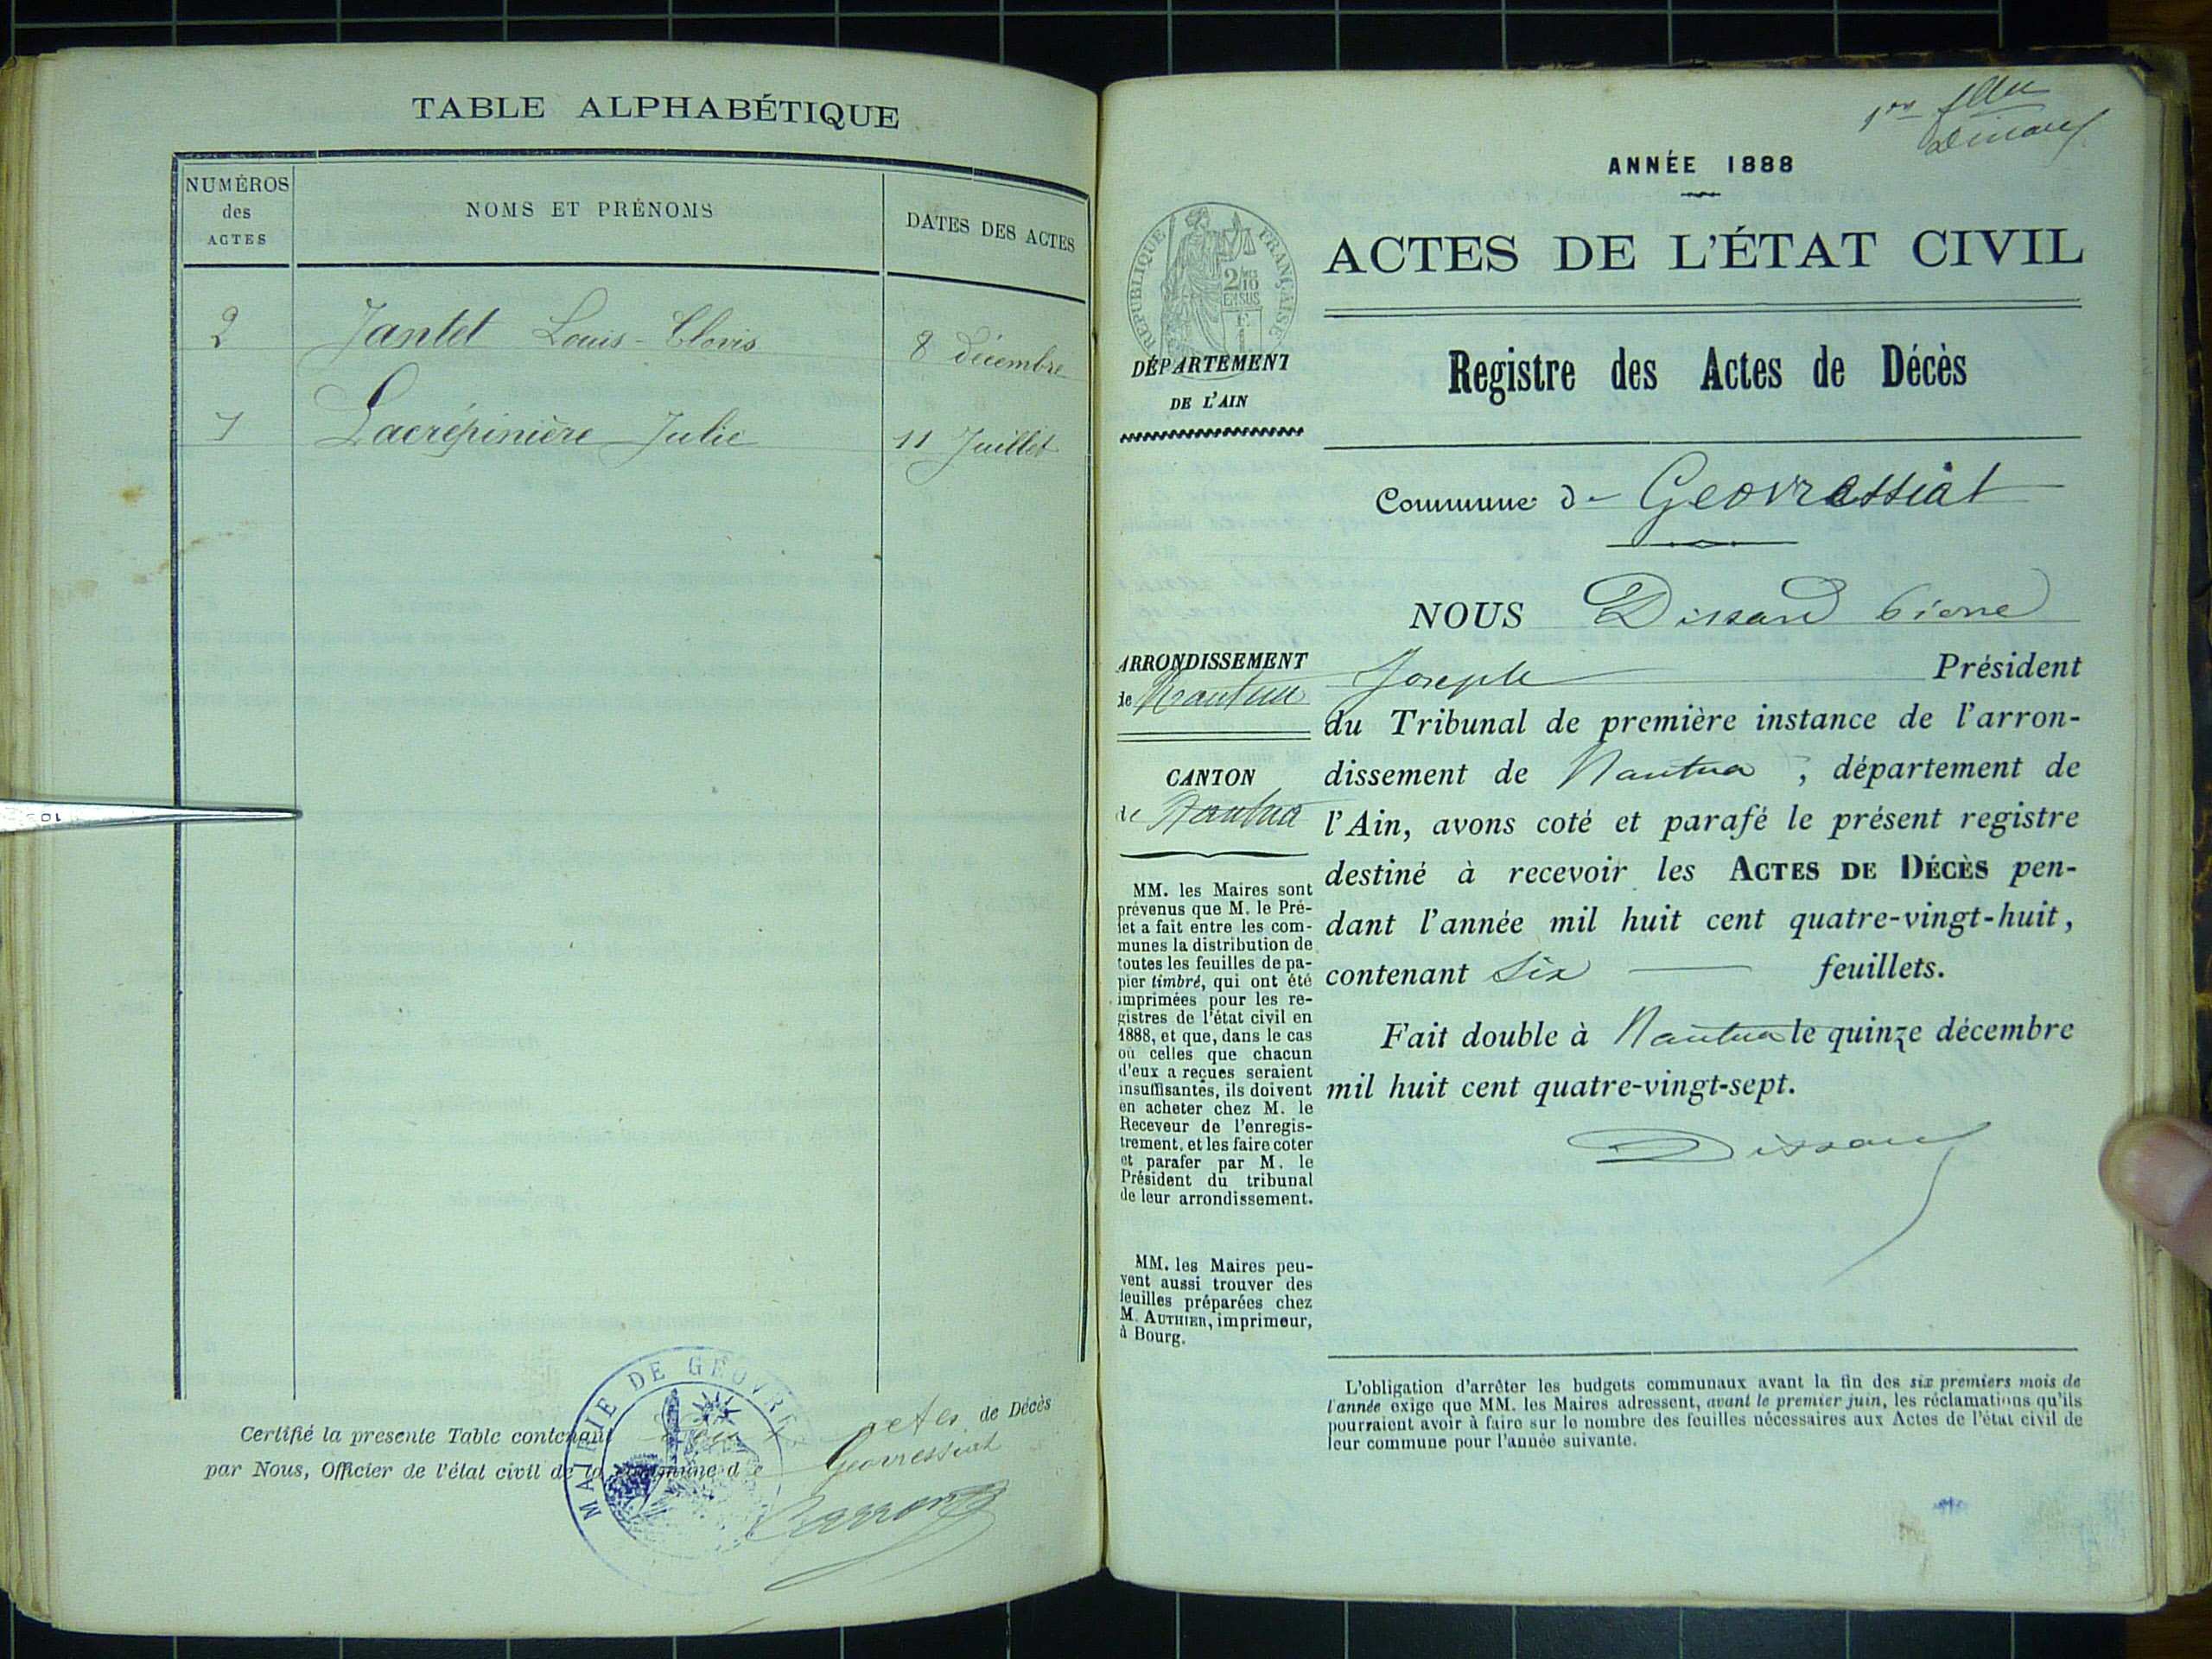 TABLE ALPHABÉTIQUE
NUMÉROS
des
ACTES
NOMS ET PRÉNOMS
DATES DES ACTES
2 Jantet Louis-Clovis 8 Décembre
1 Lacrépinière Julie 11 Juillet
Certifié la presente Table contenant actes de Décès
par Nous, Officier de l'état civil de la commune de Geovressiat
MAIRIE DE GEOVRE
1er
ANNÉE 1888
RÉPUBLIQUE FRANÇAISE
ACTES DE L'ÉTAT CIVIL
DÉPARTEMENT
DE L'AIN
Registre des Actes de Décès
Commune de Geovressiat
ARRONDISSEMENT
de Nantua
CANTON
de Nantua
MM. les Maires sont
prévenus que M. le Pré-
fet a fait entre les com-
munes la distribution de
toutes les feuilles de pa-
pier timbré, qui ont été
imprimées pour les re-
gistres de l'état civil en
1888, et que, dans le cas
où celles que chacun
d'eux a reçues seraient
insuffisantes, ils doivent
en acheter chez M. le
Receveur de l'enregis-
trement, et les faire coter
et parafer par M. le
Président du tribunal
de leur arrondissement.
MM. les Maires peu-
vent aussi trouver des
feuilles préparées chez
M. AUTHIER, imprimeur,
à Bourg.
NOUS Dissard Pierre
Joseph Président
du Tribunal de première instance de l'arron-
dissement de Nantua, département de
l'Ain, avons coté et parafé le présent registre
destiné à recevoir les ACTES DE DÉCÈS pen-
dant l'année mil huit cent quatre-vingt-huit,
contenant six feuillets.
Fait double à Nantua le quinze décembre
mil huit cent quatre-vingt-sept.
Dissard
L'obligation d'arrêter les budgets communaux avant la fin des six premiers mois de
l'année exige que MM. les Maires adressent, avant le premier juin, les réclamations qu'ils
pourraient avoir à faire sur le nombre des feuilles nécessaires aux Actes de l'état civil de
leur commune pour l'année suivante.